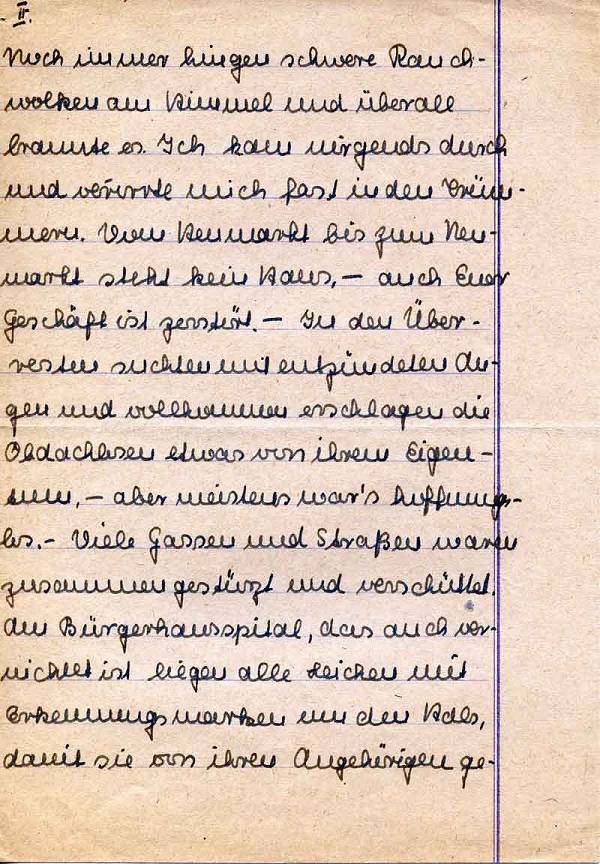 II.
Noch immer hingen schwere Rauch-
wolken am Himmel und überall
brannte es. Ich kam nirgends durch
und verirrte mich fast in den Trüm-
mern. Vom Heumarkt bis zum Neu-
markt steht kein Haus, – auch Euer
Geschäft ist zerstört. – In den Über-
resten suchten mit entzündeten Au-
gen und vollkommen erschlagen die
Obdachlosen etwas von ihrem Eigen-
tum, – aber meistens war's hoffnungs-
los. – Viele Gassen und Straßen waren
zusammengestürzt und verschüttet.
Im Bürgerhausspital, das auch ver-
nichtet ist liegen alle Leichen mit
Erkennungsmarken um den Hals,
damit sie von ihren Angehörigen ge-